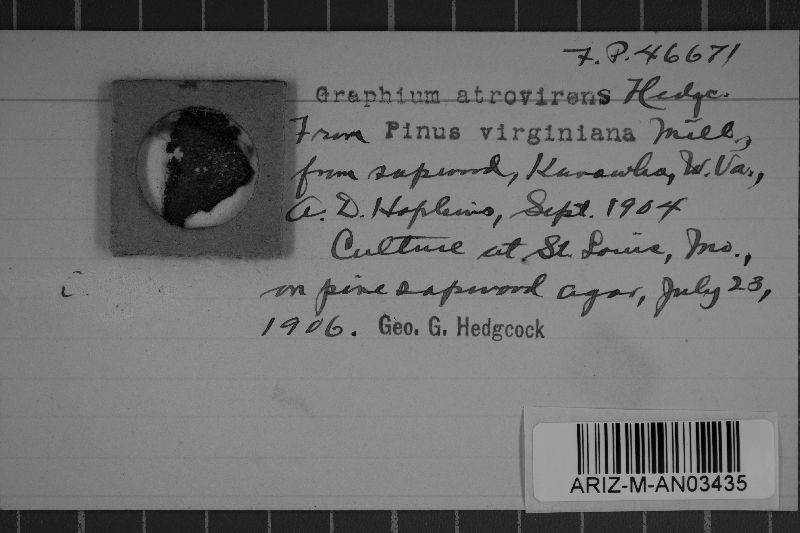 F.P. 46671
Graphium atrovirens Hedgc.
From Pinus virginiana Mill.,
from sapwood, Kanawha, W. Va.,
A. D. Hopkins, Sept. 1904
Culture at St. Louis, Mo.,
on pine sapwood agar, July 23,
1906. Geo. G. Hedgcock
ARIZ-M-AN03435